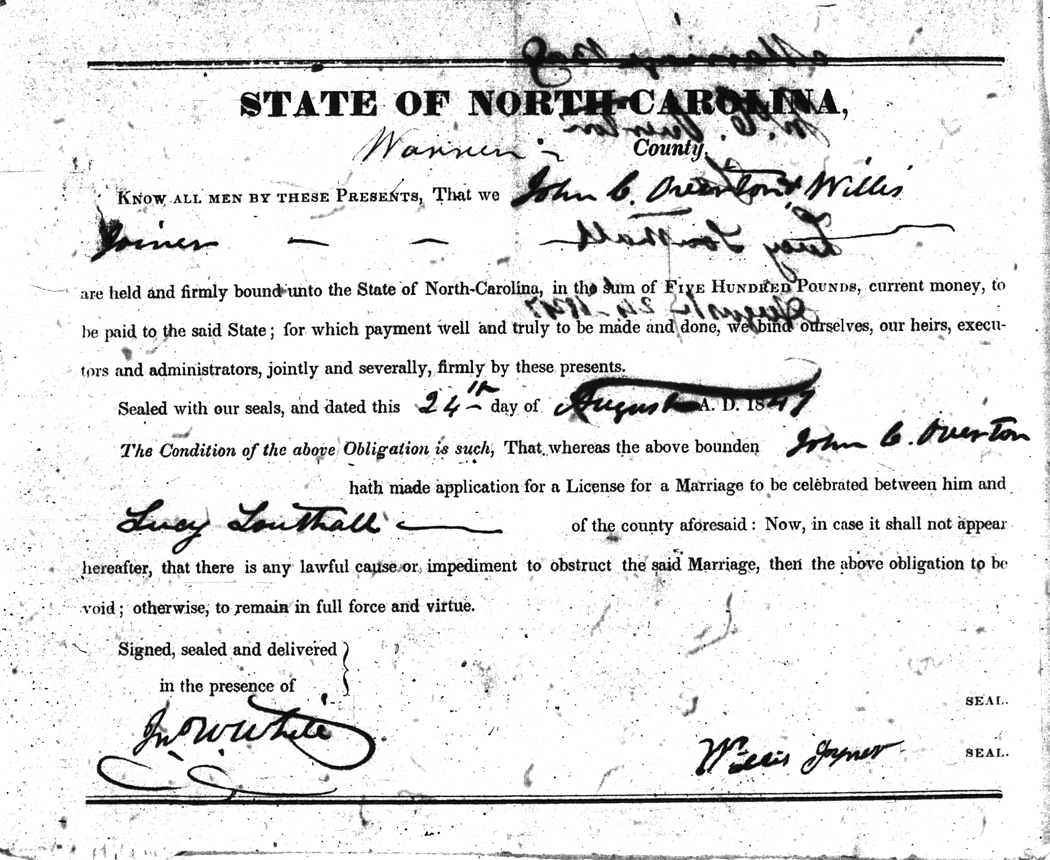 STATE OF NORTH-CAROLINA,
Warren County,
KNOW ALL MEN BY THESE PRESENTS, That we John C. Overton & Willis
Joiner
are held and firmly bound unto the State of North-Carolina, in the sum of FIVE HUNDRED POUNDS, current money, to
be paid to the said State; for which payment well and truly to be made and done, we bind ourselves, our heirs, execu-
tors and administrators, jointly and severally, firmly by these presents.
Sealed with our seals, and dated this 24th day of August A. D. 1847
The Condition of the above Obligation is such, That whereas the above bounden John C. Overton
hath made application for a License for a Marriage to be celebrated between him and
Lucy Southall of the county aforesaid: Now, in case it shall not appear
hereafter, that there is any lawful cause or impediment to obstruct the said Marriage, then the above obligation to be
void; otherwise, to remain in full force and virtue.
Signed, sealed and delivered
in the presence of
SEAL.
Jno W White
Willis Joyner SEAL.